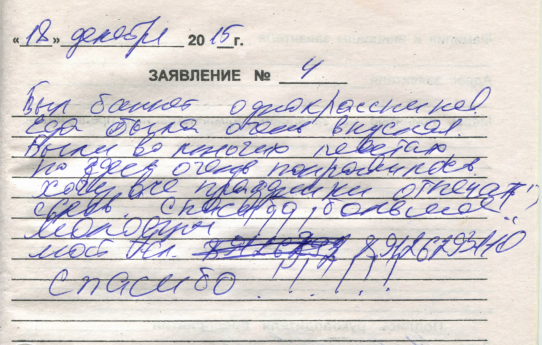 «18» декабря 2015 г.
ЗАЯВЛЕНИЕ № 4
Был банкет одноклассников!
Еда была очень вкусная.
Были во многих местах
но здесь очень понравилось
хочу все праздники отмечать
здесь спасибо большое
молодцы
мой тел.
Спасибо.!!!!